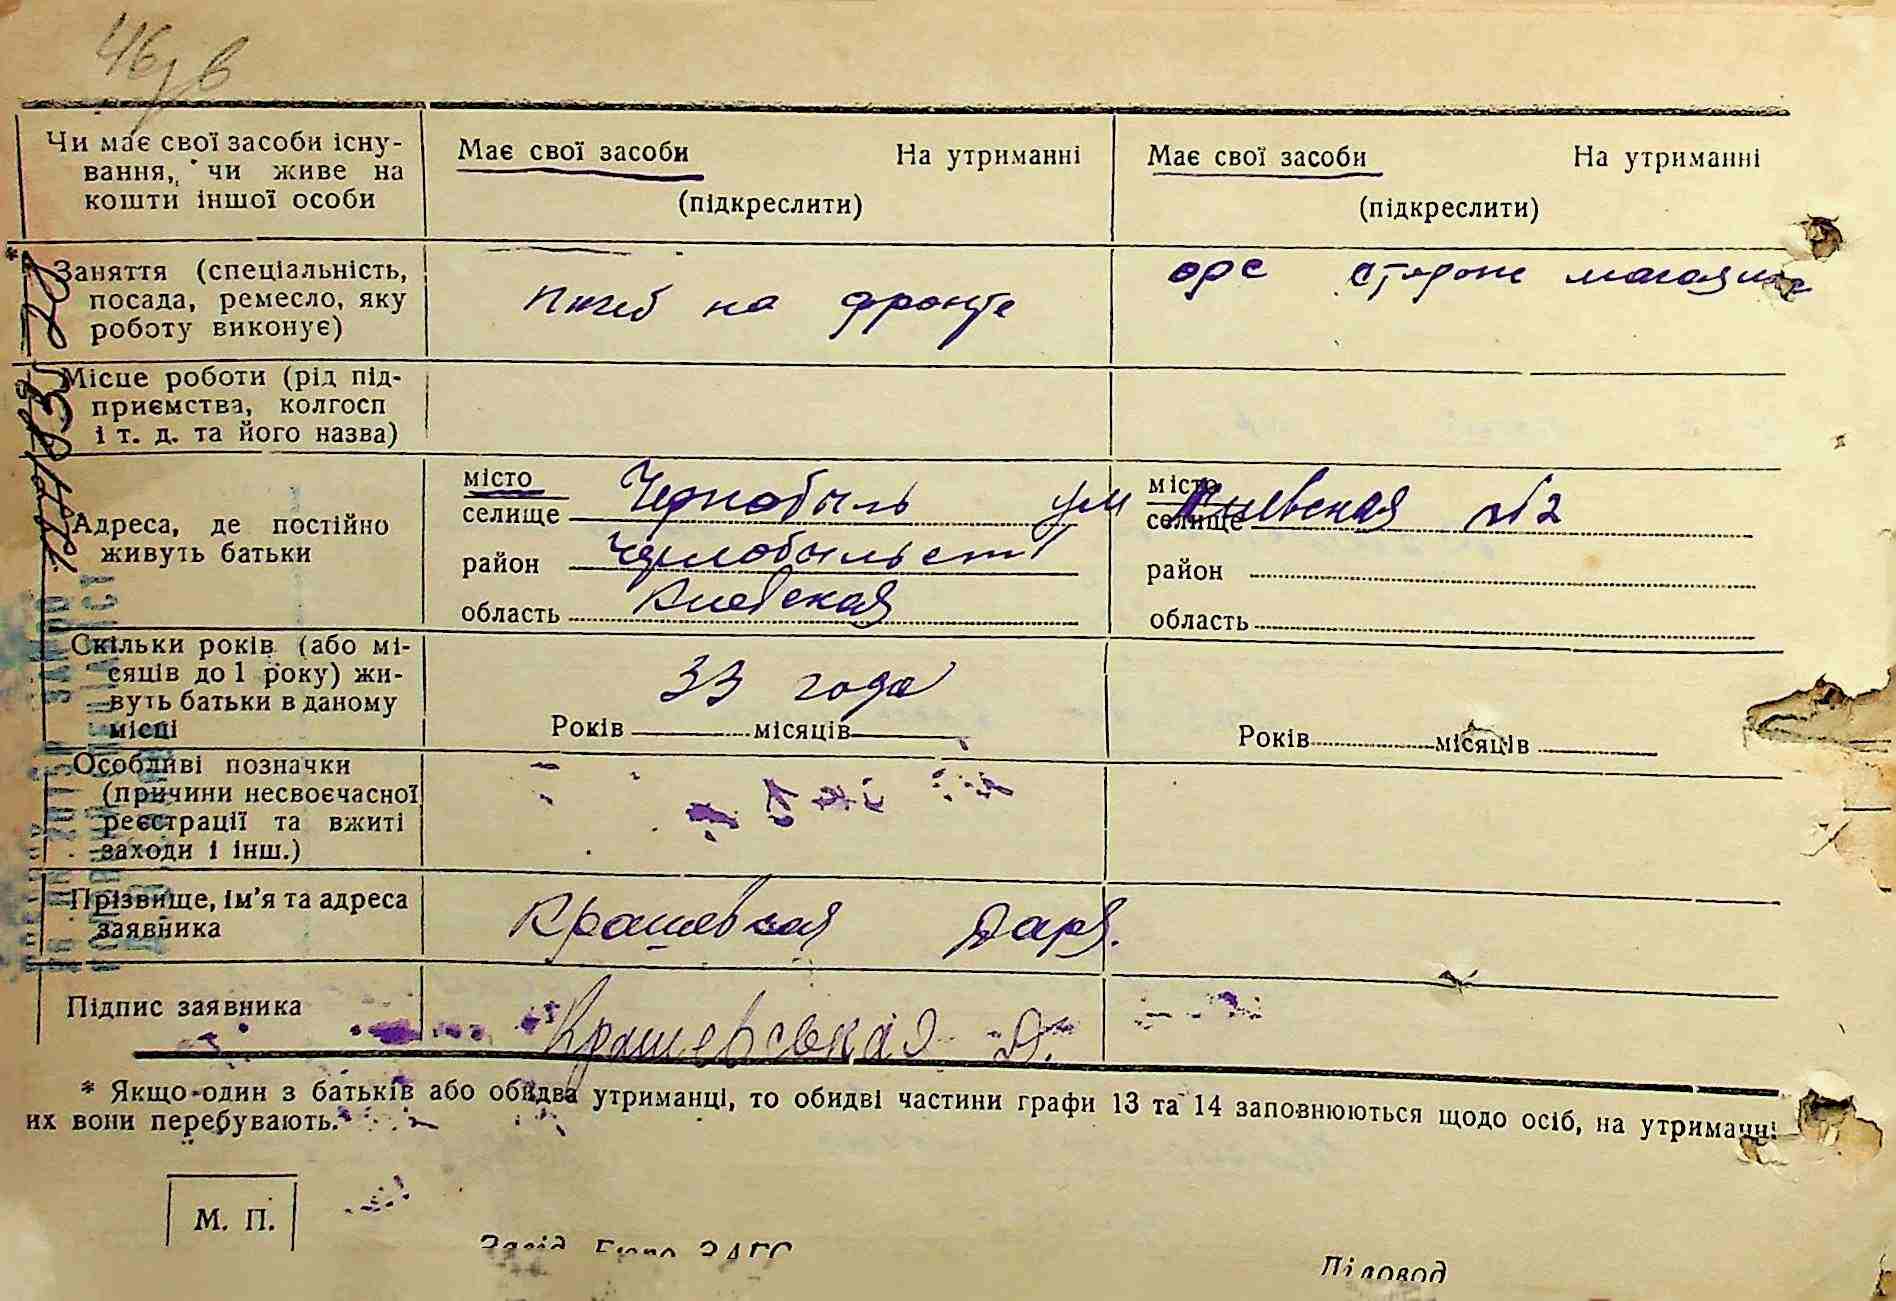 46 зв
Чи має свої засоби існу-
вання, чи живе на
кошти іншої особи
Має свої засоби На утриманні
(підкреслити)
Має свої засоби На утриманні
(підкреслити)
* Заняття (спеціальність,
посада, ремесло, яку
роботу виконує)
погиб на фронте
орс сторож магазина
Місце роботи (рід під-
приємства, колгосп
і т. д. та його назва)
Адреса, де постійно
живуть батьки
місто
селище Чернобыль ул
район
область Киевская
місто
селище Киевская №2
район
область
Скільки років (або мі-
сяців до 1 року) жи-
вуть батьки в даному
місці
33 года
Років місяців
Років місяців
Особливі позначки
(причини несвоєчасної
реєстрації та вжиті
заходи і інш.)
Прізвище, ім'я та адреса
заявника
Крашевская Даря.
Підпис заявника
Крашевськая Д.
* Якщо один з батьків або обидва утриманці, то обидві частини графи 13 та 14 заповнюються щодо осіб, на утриманні
их вони перебувають.
М. П.
Завід. Бюро ЗАГС
Діловод